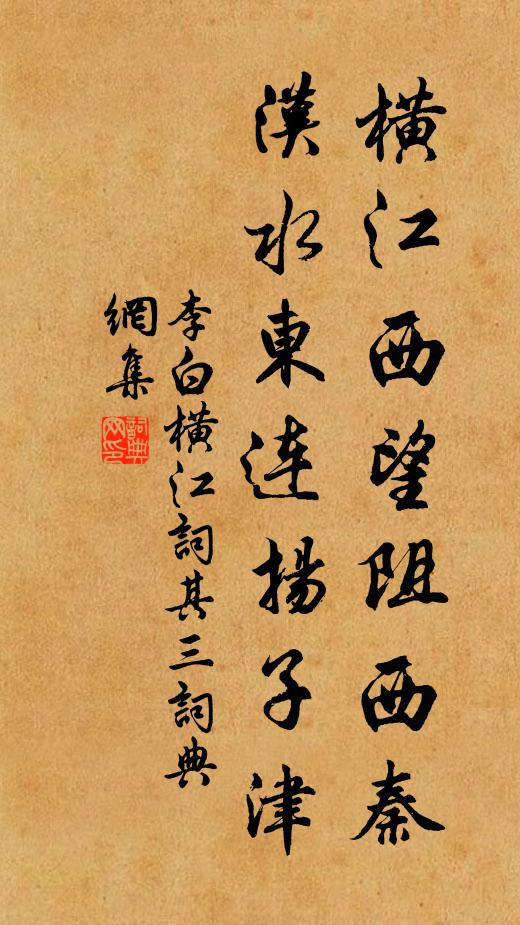 橫江西望阻西秦
漢水東連揚子津
李白橫江詞其三詞典
網集
詞典网印